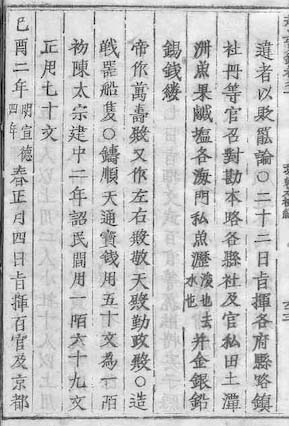 違者以論○二十二日旨揮各府縣路鎮
社冊等官召對勘本路各縣社及官私田土潭
洲魚果鹹塩各海門私魚瀝瀝也去水也并金銀鉛
錫錢縷
帝作萬壽殿又作左右殿敬天殿勤政殿○造
戰器船隻○鑄順天通寶錢用五十文為一陌
初陳太宗建中二年詔民間用一陌六十九文
正用七十文
己酉二年明宣德四年春正月四日旨揮百官及京都